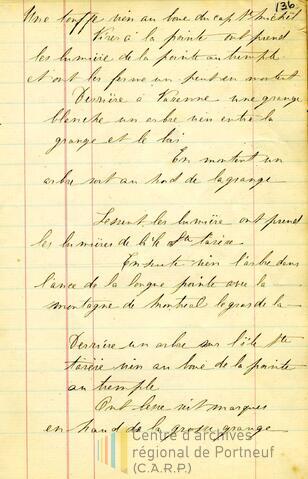 126
Une touffe vien au boue du cap St Michel
Virer à la pointe ont prend
les lumière de la pointe au tremple
et ont les ferme un peut en montent
Derrière à Varenne une grange
blanche un arbre vien entre la
grange et le bois
En montent un
arbre sort au nord de la grange
les lumière ont prend
les lumières de l'île Ste tarèse
Ensuite vien l'arbre dans
l'ance de la longue pointe avec la
montagne de Montreal le gros de la
Derrière un arbre sur l'île Ste
tarèse vien au boue de la pointe
au tremple
Ont lève uit marques
en haud de la grosse grange
Centre d'archives
régional de Portneuf
(C.A.R.P.)